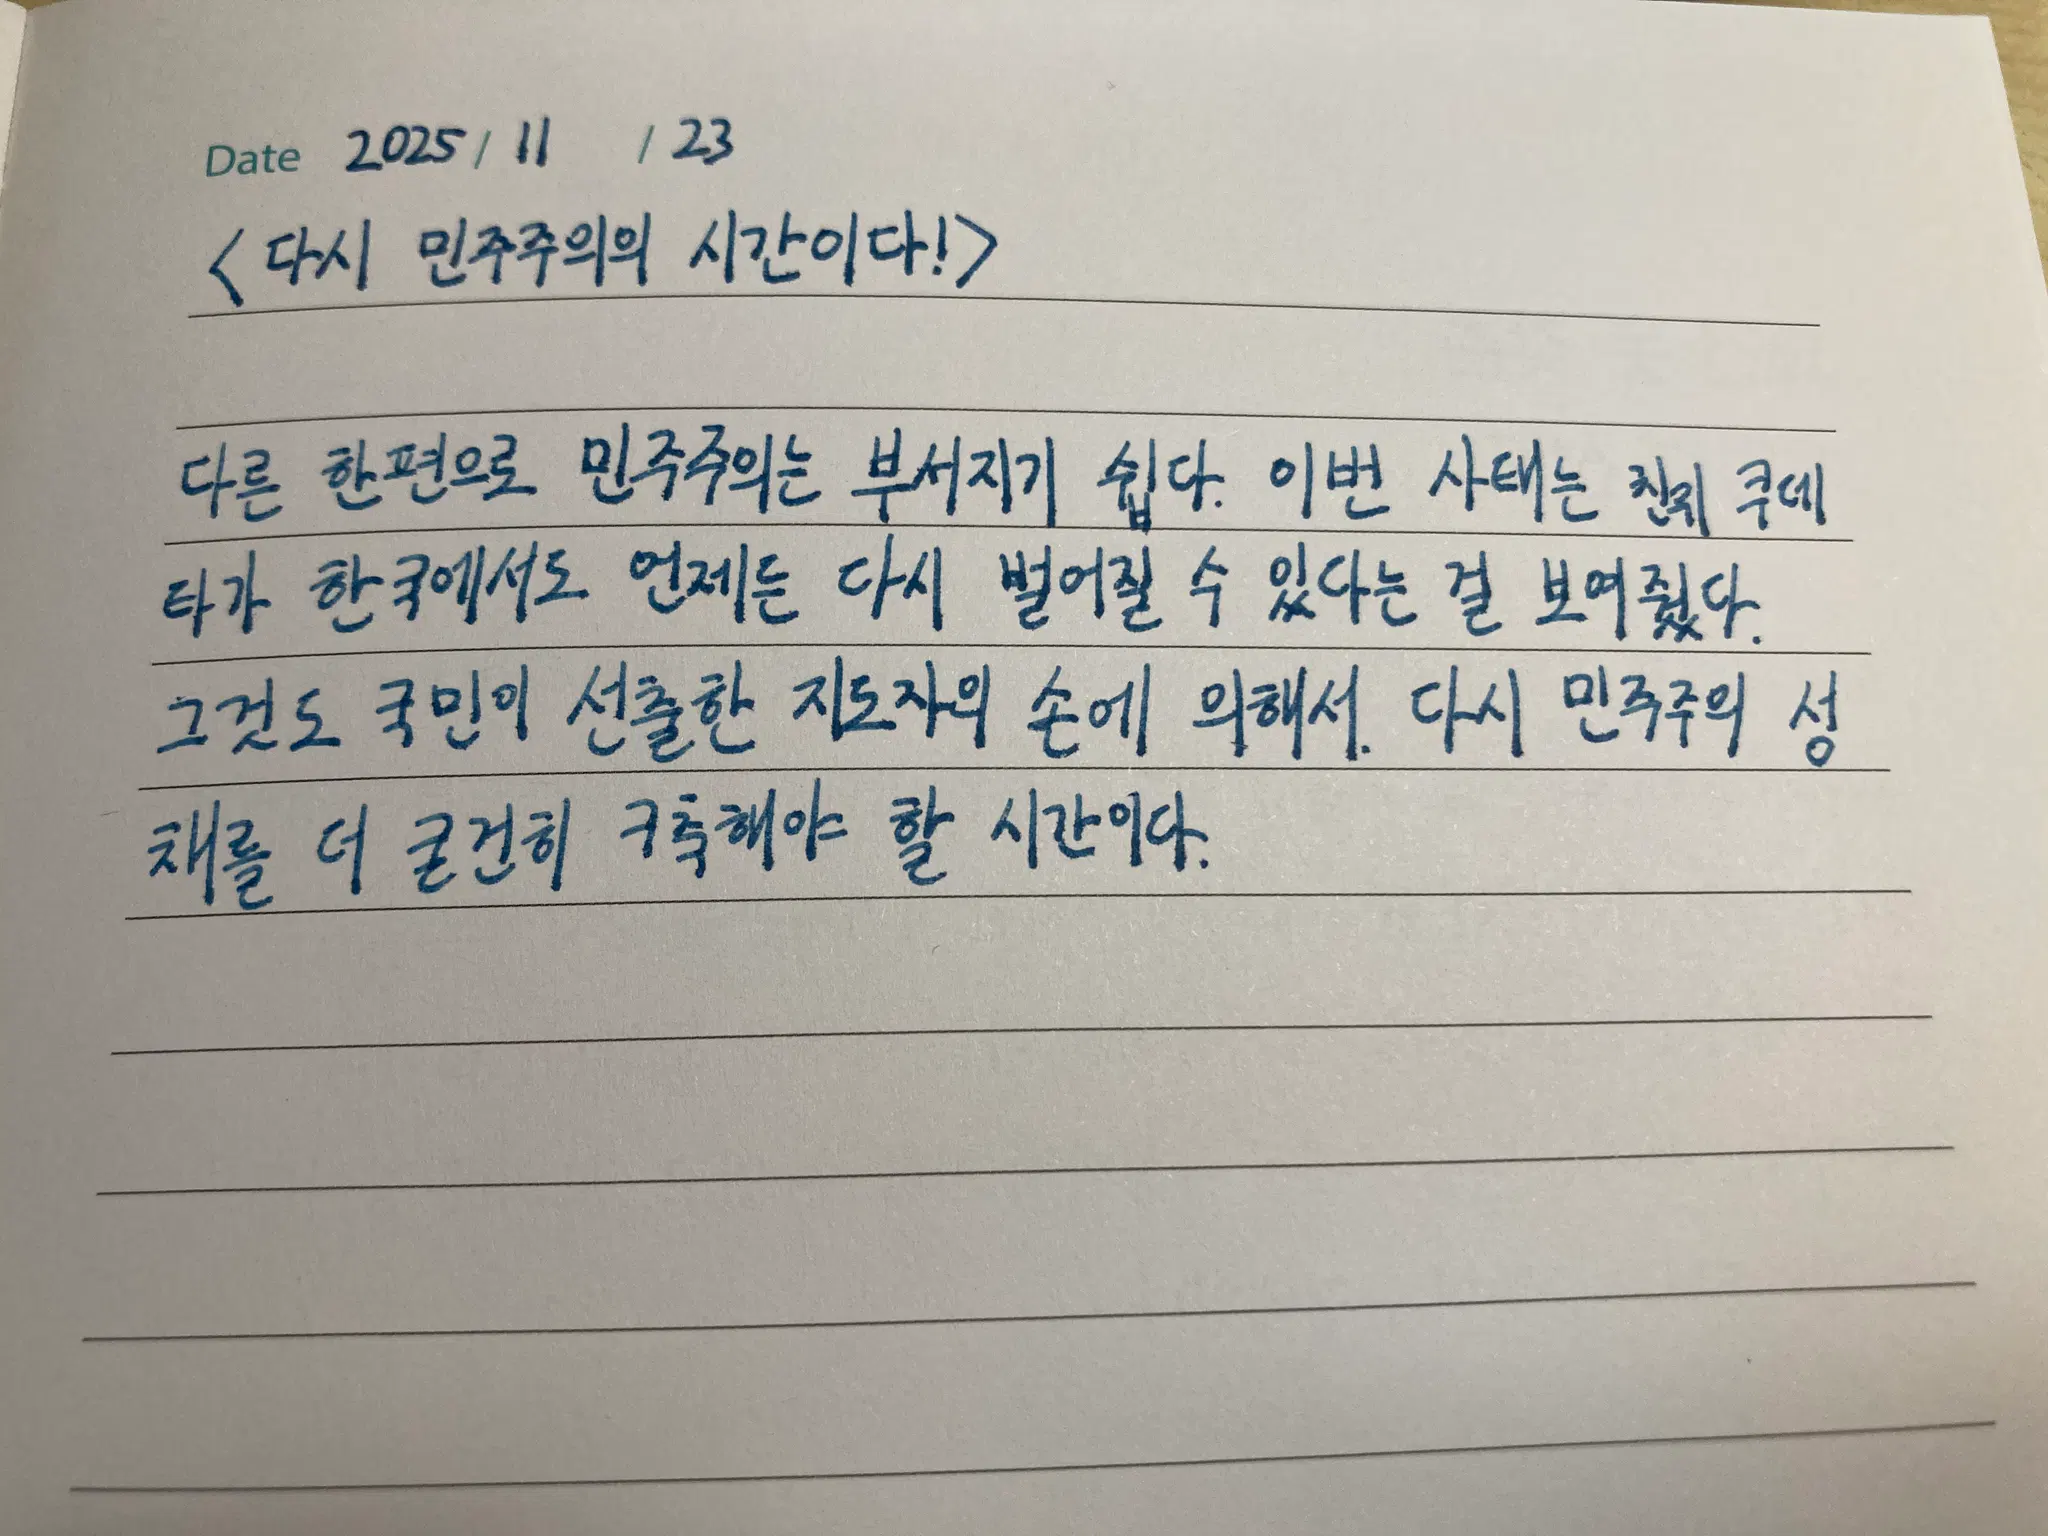 Date 2025 / 11 / 23
<다시 민주주의의 시간이다!>
다른 한편으로 민주주의는 부서지기 쉽다. 이번 사태는 친위 쿠데
타가 한국에서도 언제든 다시 벌어질 수 있다는 걸 보여줬다.
그것도 국민이 선출한 지도자의 손에 의해서. 다시 민주주의 성
채를 더 굳건히 구축해야 할 시간이다.